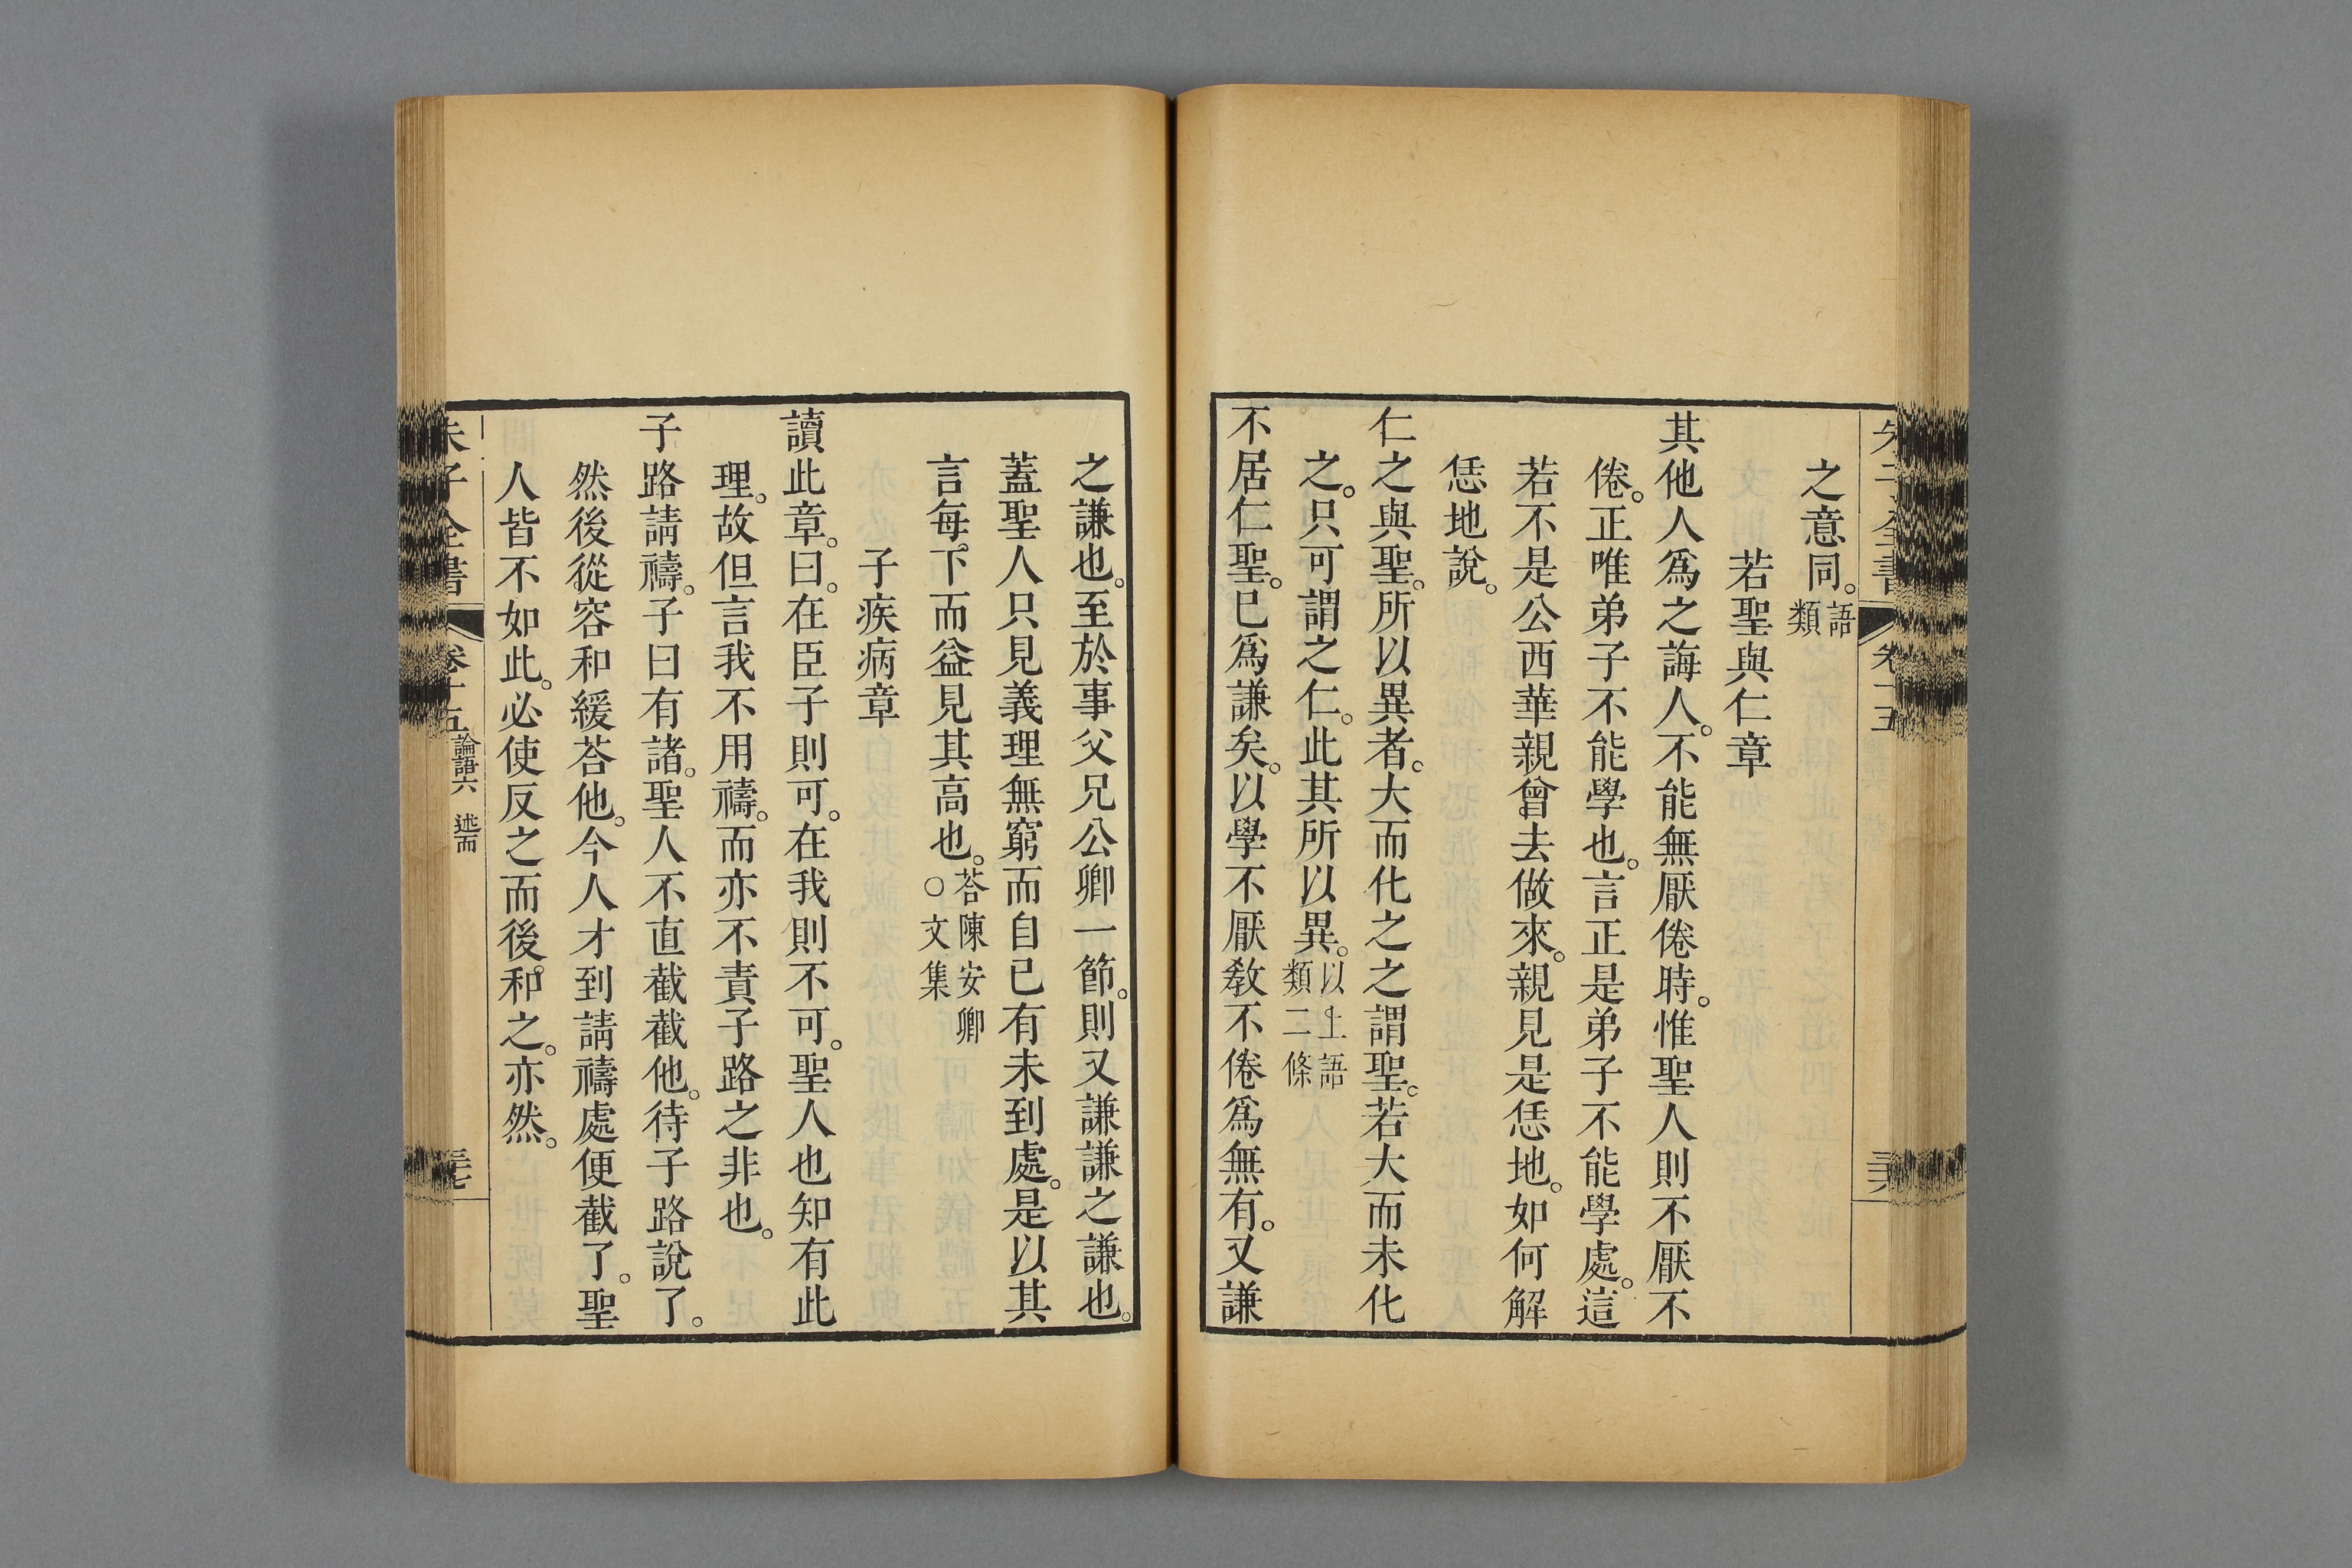 之意同。語類
若聖與仁章
其他人爲之誨人。不能無厭倦時。惟聖人則不厭不
倦。正唯弟子不能學也。言正是弟子不能學處。這
若不是公西華親曾去做來。親見是恁地。如何解
恁地說。
仁之與聖。所以異者。大而化之之謂聖。若大而未化
之。只可謂之仁。此其所以異。以上語類二條
不居仁聖。已爲謙矣。以學不厭敎不倦爲無有。又謙
之謙也。至於事父兄公卿一節。則又謙謙之謙也。
蓋聖人只見義理無窮而自已有未到處。是以其
言每下而益見其高也。答陳安卿○文集
子疾病章
讀此章。曰。在臣子則可。在我則不可。聖人也知有此
理。故但言我不用禱。而亦不責子路之非也。
子路請禱。子曰有諸。聖人不直截截他。待子路說了。
然後從容和緩荅他。今人才到請禱處便截了。聖
人皆不如此。必使反之而後和之。亦然。
朱子全書 卷十五 論語六 述而